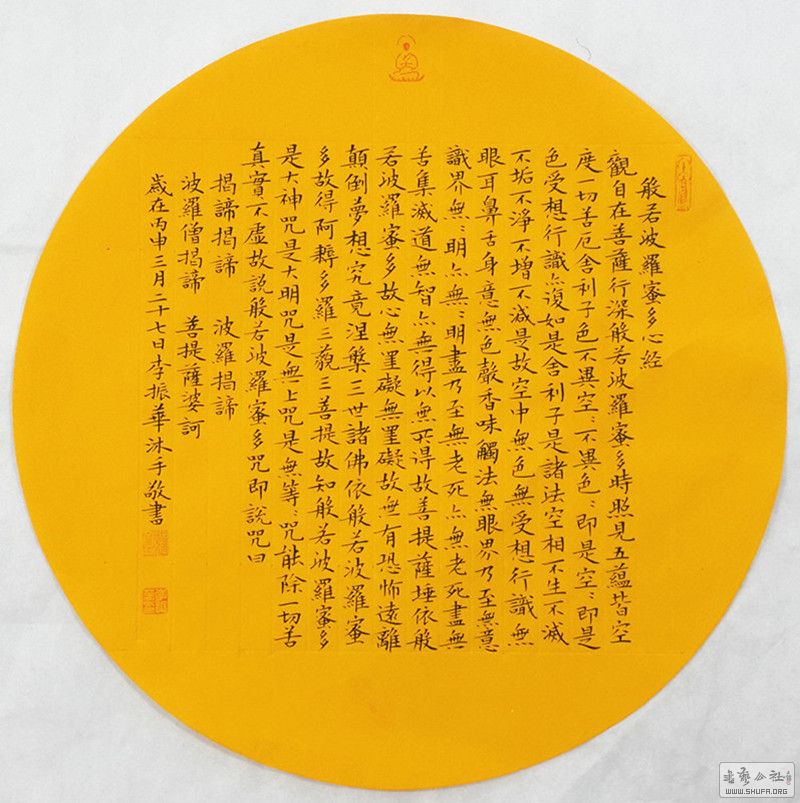 般若波羅蜜多心経
觀自在菩薩行深般若波羅蜜多時照見五蘊皆空
度一切苦厄舍利子色不異空〻不異色〻即是空〻即是
色受想行識亦復如是舍利子是諸法空相不生不滅
不垢不淨不增不減是故空中無色無受想行識無
眼耳鼻舌身意無色聲香味觸法無眼界乃至無意
識界無〻明亦無〻明盡乃至無老死亦無老死盡無
苦集滅道無智亦無得以無所得故菩提薩埵依般
若波羅蜜多故心無罣礙無罣礙故無有恐怖遠離
顛倒夢想究竟涅槃三世諸佛依般若波羅蜜
多故得阿耨多羅三藐三菩提故知般若波羅蜜多
是大神咒是大明咒是無上咒是無等〻咒能除一切苦
真實不虛故說般若波羅蜜多咒即說咒曰
揭諦揭諦 波羅揭諦
波羅僧揭諦 菩提薩婆訶
歲在丙申三月二十七日李振華沐手敬書
WWW.SHUFA.ORG